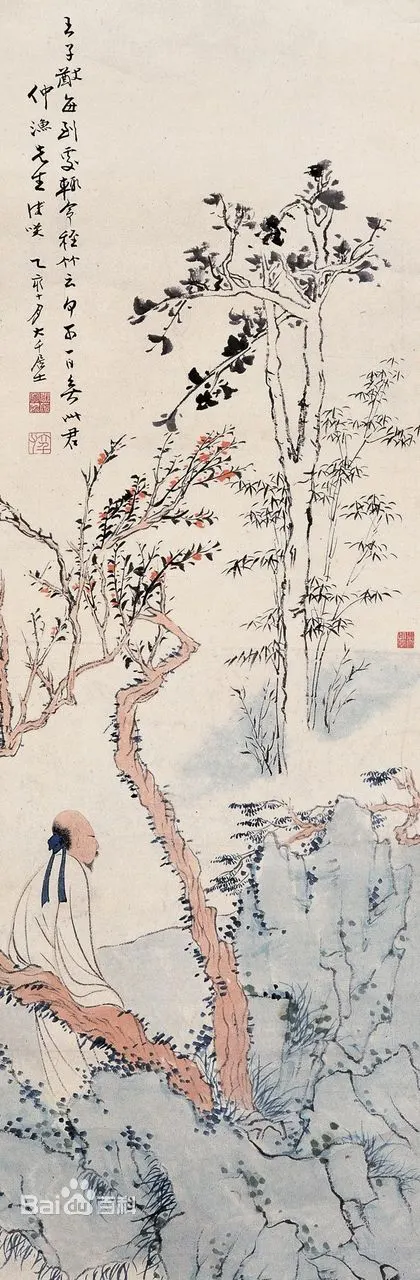 王子猷每到處輒種竹云何可一日無此君
仲漁先生法咲 乙亥十月大千居士
Baidu百科